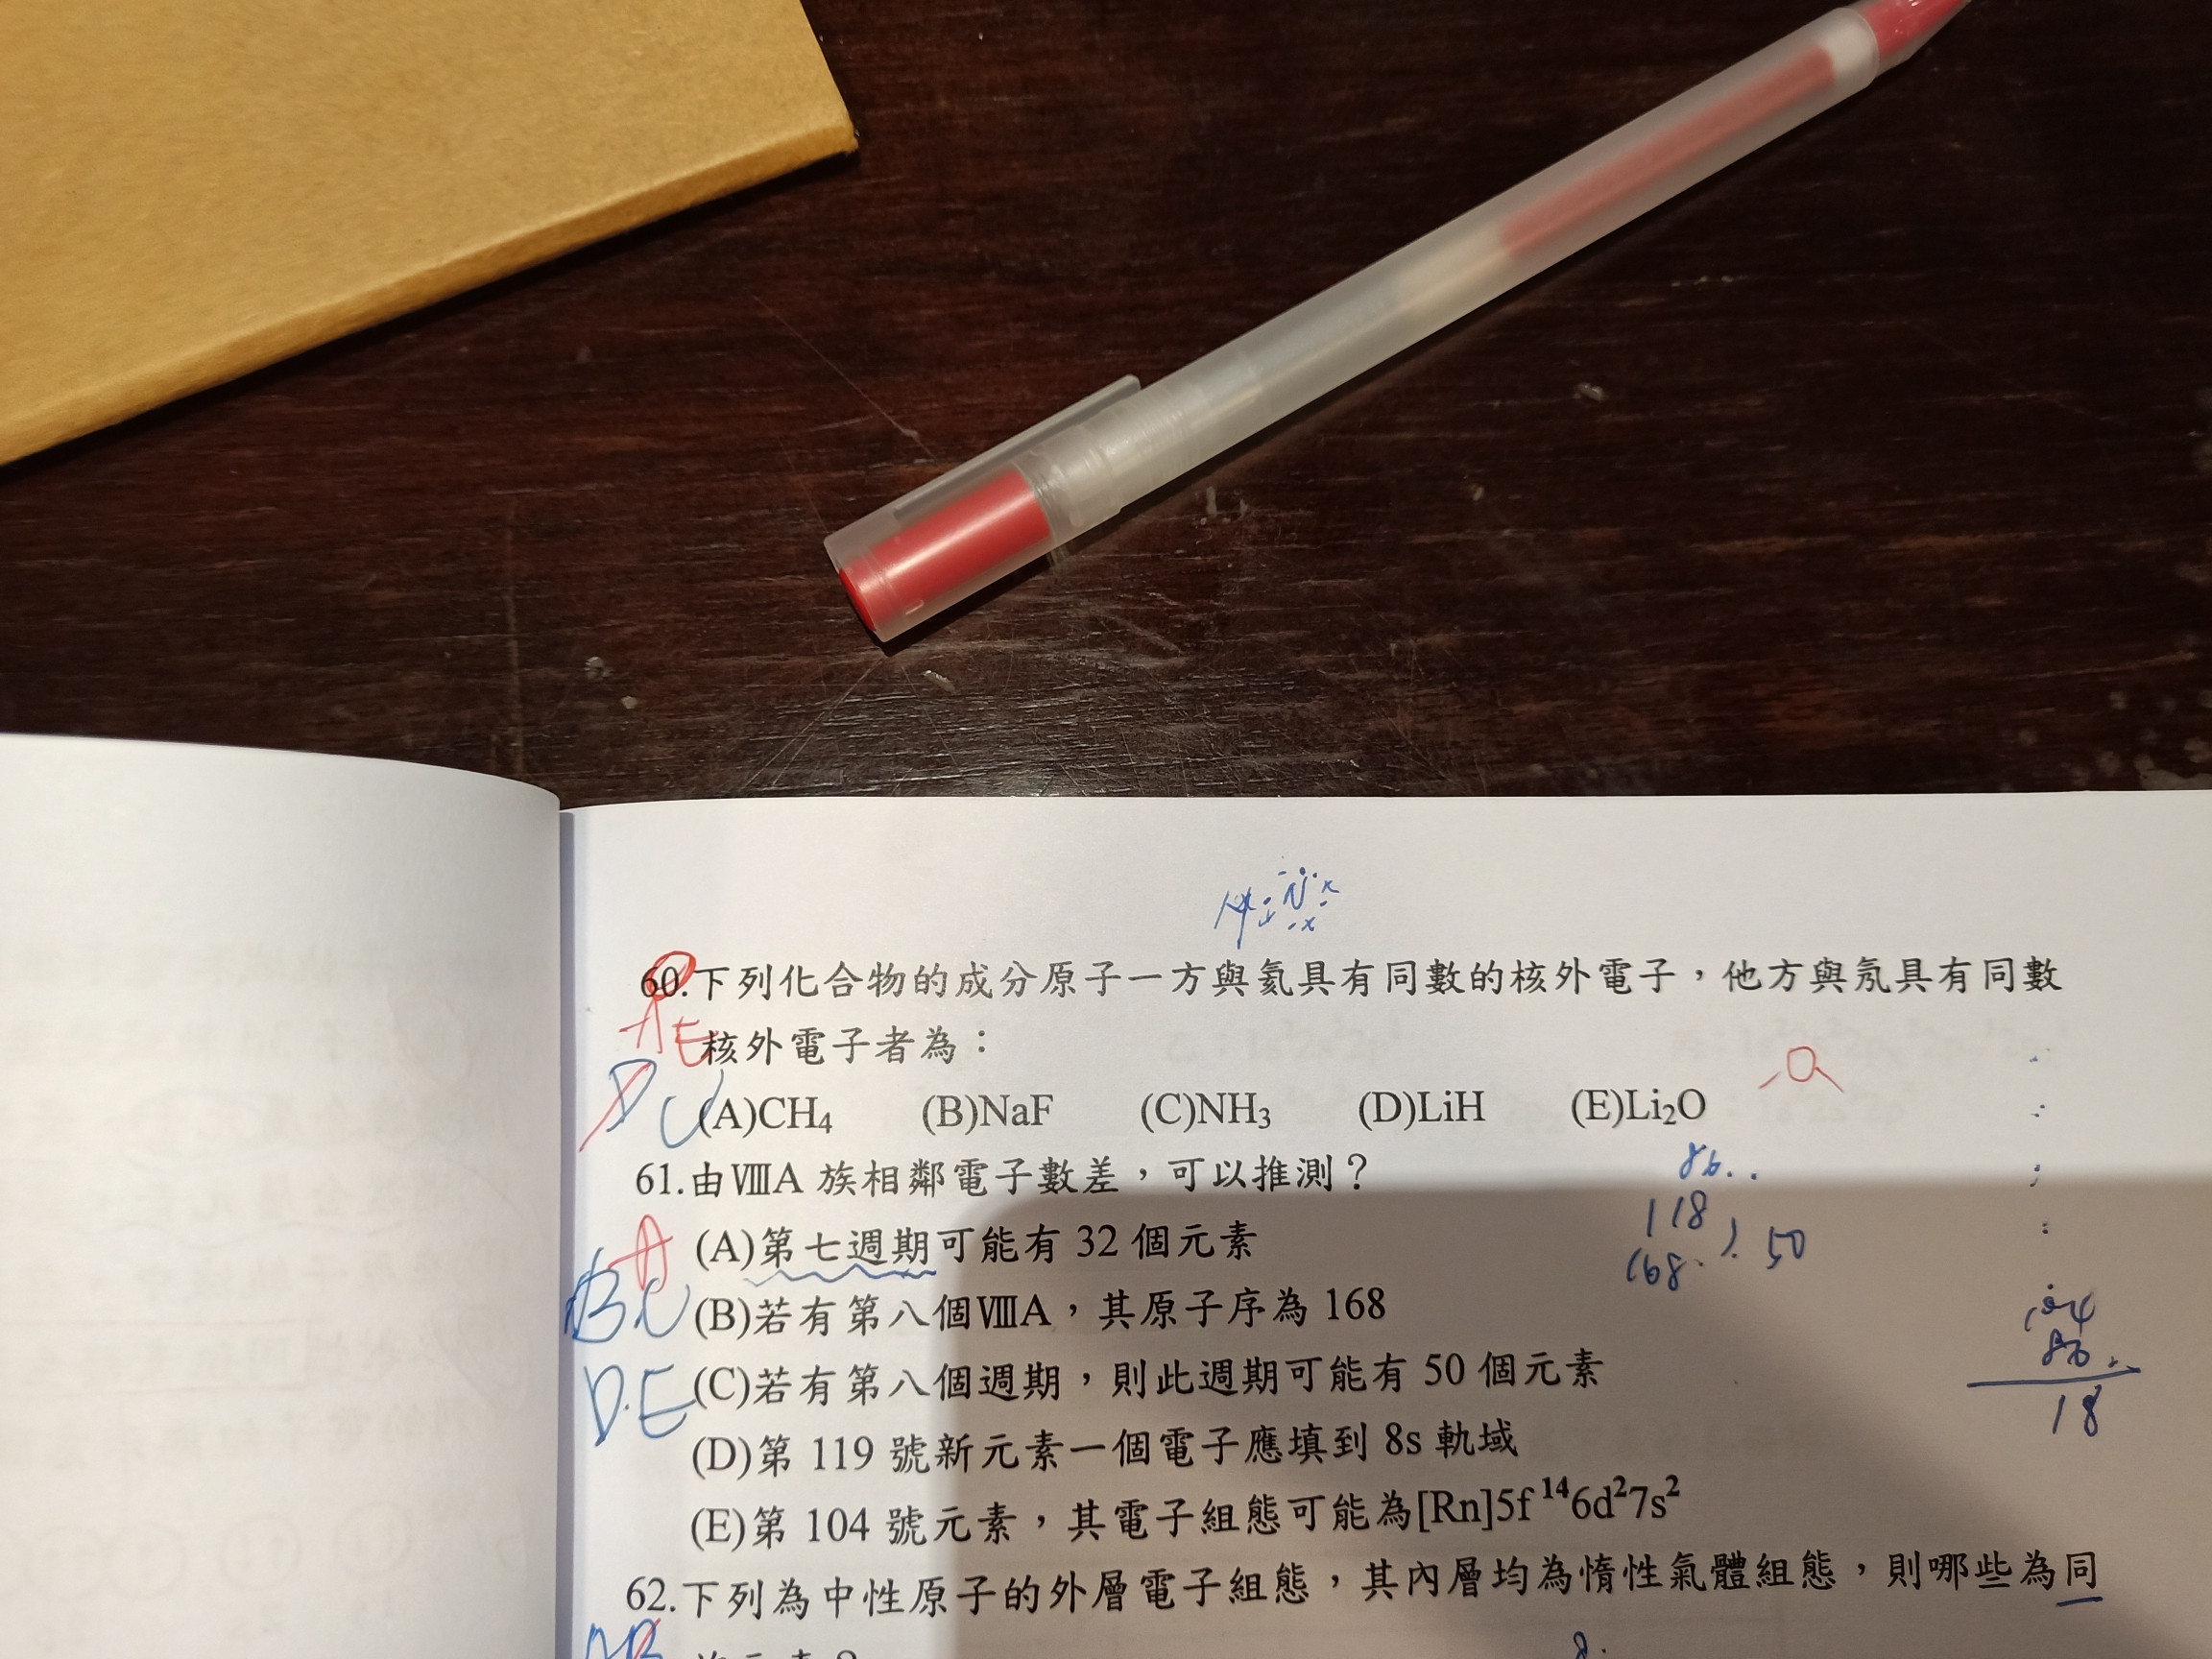 60.下列化合物的成分原子一方與氦具有同數的核外電子，他方與氖具有同數
AE
核外電子者為：
(A)CH₄ (B)NaF (C)NH₃ (D)LiH (E)Li₂O
D C
61.由ⅧA 族相鄰電子數差，可以推測？
86
(A)第七週期可能有 32 個元素
A
118
50
168
(B)若有第八個ⅧA，其原子序為 168
BC
104
86
(C)若有第八個週期，則此週期可能有 50 個元素
D.E
18
(D)第 119 號新元素一個電子應填到 8s 軌域
(E)第 104 號元素，其電子組態可能為[Rn]5f¹⁴6d²7s²
62.下列為中性原子的外層電子組態，其內層均為惰性氣體組態，則哪些為同